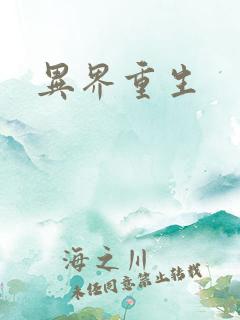 異界重生
海之川
未经同意禁止转载